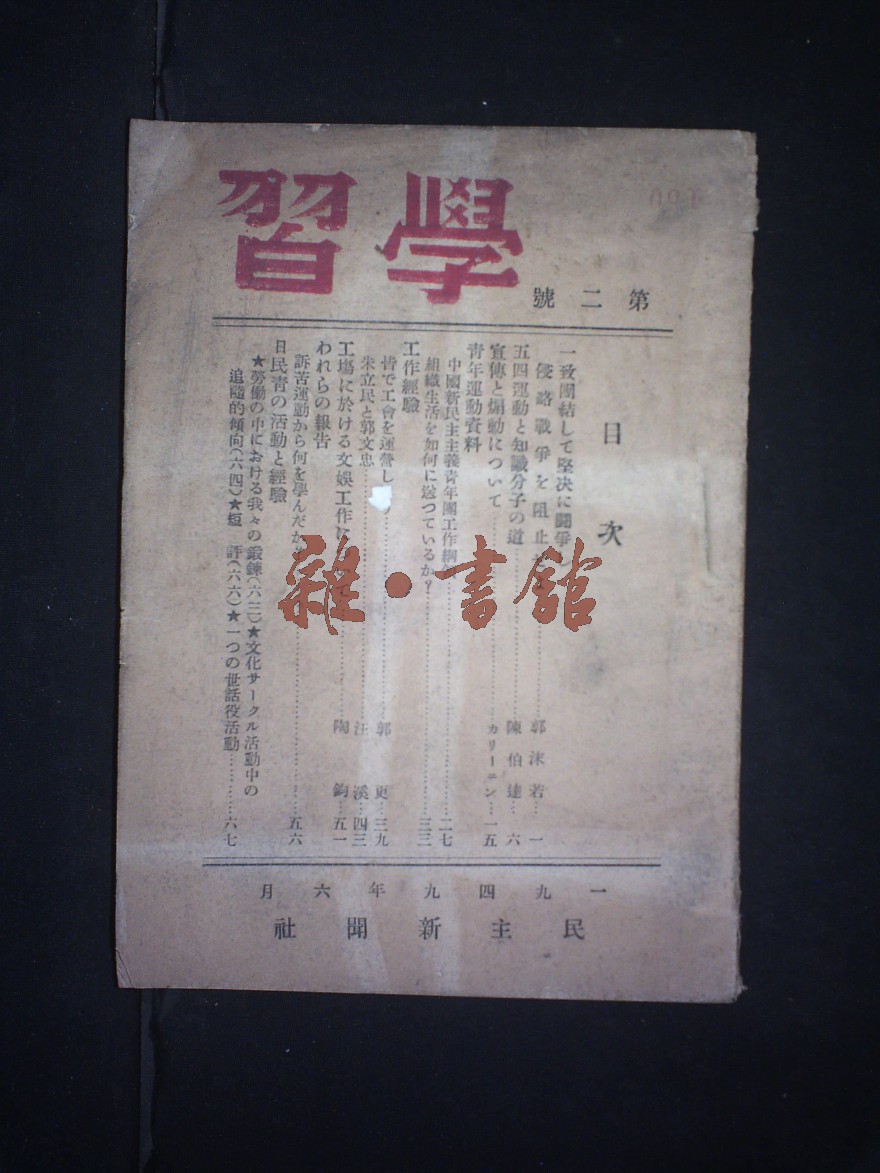 學習
第二號
目次
一致團結して堅决に鬪爭し
侵略戰爭を阻止せよ…………郭沫若…一
五四運動と知識分子の道…………陳伯達…六
宣傳と煽動について…………カリーニン…一五
靑年運動資料
中國新民主主義靑年團工作綱領…………二七
組織生活を如何に送つているか?…………三三
工作經驗
皆で工會を運營し…………郭 更…三九
朱立民と郭文忠…………汪 溪…四三
工場に於ける文娛工作に…………陶 鈞…五一
われらの報告
訴苦運動から何を學んだか…………五六
日民靑の活動と經驗
★勞働の中における我々の鍛鍊(六二)★文化サークル活動中の
追隨的傾向(六四)★短 評(六六)★一つの世話役活動…………六七
一九四九年六月
民主新聞社
雜·書館